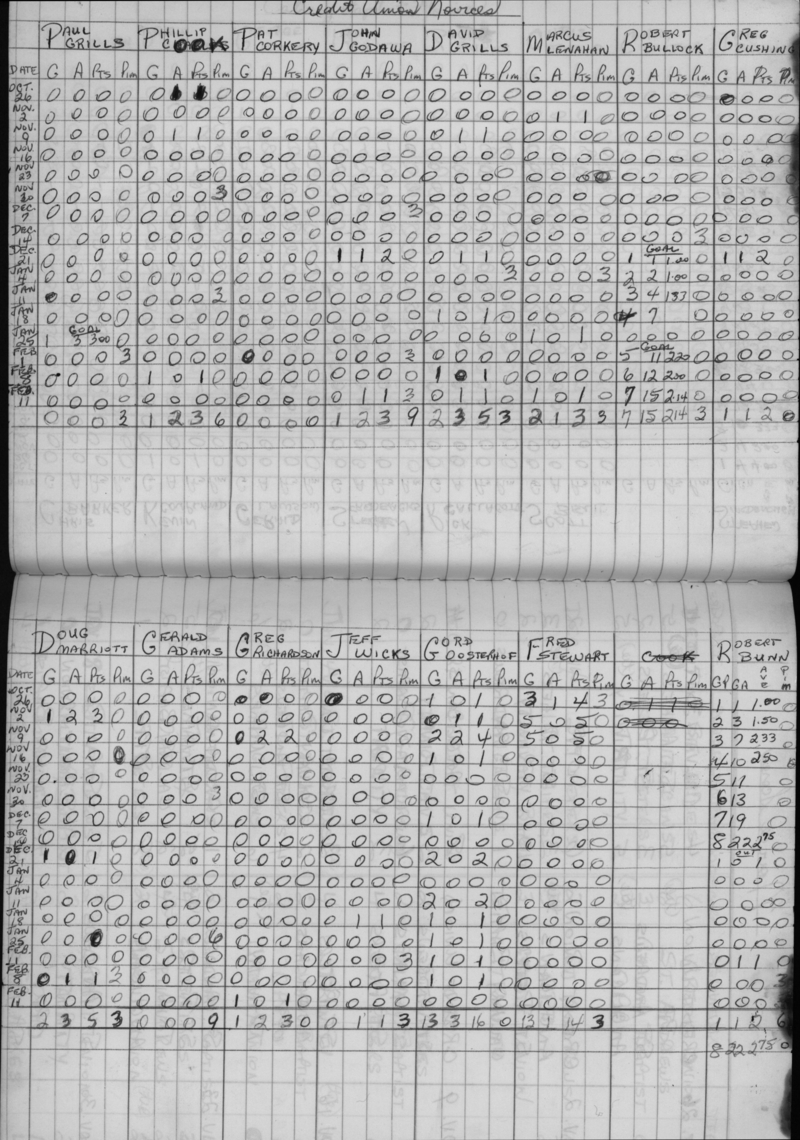 Credit Union Novices
PAUL GRILLS PHILLIP COOK PAT CORKERY JOHN GODAWA DAVID GRILLS MARCUS MLENAHAN ROBERT BULLOCK GREG CUSHING
DATE G A Pts Pim G A Pts Pim G A Pts Pim G A Pts Pim G A Pts Pim G A Pts Pim G A Pts Pim G A Pts Pim
OCT. 26 0 0 0 0 0 0 0 0 0 0 0 0 0 0 0 0 0 0 0 0 0 0 0 0 0 0 0
NOV. 2 0 0 0 0 0 0 0 0 0 0 0 0 0 0 0 0 0 0 0 0 0 1 1 0 0 0 0 0 0 0 0 0
NOV. 9 0 0 0 0 0 1 1 0 0 0 0 0 0 0 0 0 0 1 1 0 0 0 0 0 0 0 0 0 0 0 0 0
NOV 16 0 0 0 0 0 0 0 0 0 0 0 0 0 0 0 0 0 0 0 0 0 0 0 0 0 0 0 0 0 0 0 0
NOV 23 0 0 0 0 0 0 0 0 0 0 0 0 0 0 0 0 0 0 0 0 0 0 0 0 0 0 0 0 0 0 0
NOV 30 0 0 0 0 0 0 0 3 0 0 0 0 0 0 0 0 0 0 0 0 0 0 0 0 0 0 0 0 0 0 0 0
DEC. 7 0 0 0 0 0 0 0 0 0 0 0 0 0 0 0 3 0 0 0 0 0 0 0 0 0 0 0 0 0 0 0 0
DEC. 14 0 0 0 0 0 0 0 0 0 0 0 0 0 0 0 0 0 0 0 0 0 0 0 0 0 0 0 3 0 0 0 0
DEC. 21 0 0 0 0 0 0 0 0 0 0 0 0 1 1 2 0 0 1 1 0 0 0 0 0 1 GOAL 1 1.00 0 1 1 2 0
JAN 4 0 0 0 0 0 0 0 0 0 0 0 0 0 0 0 0 0 0 0 3 0 0 0 3 2 2 1.00 0 0 0 0 0
JAN 11 0 0 0 0 0 0 0 3 0 0 0 0 0 0 0 0 0 0 0 0 0 0 0 0 3 4 1.33 0 0 0 0 0
JAN 18 0 0 0 0 0 0 0 0 0 0 0 0 0 0 0 0 1 0 1 0 0 0 0 0 4 7 0 0 0 0 0
JAN 25 1 GOAL 3 300 0 0 0 0 0 0 0 0 0 0 0 0 0 0 0 0 0 1 0 1 0 0 0 0 0 0 0 0 0
FEB 1 0 0 0 3 0 0 0 0 0 0 0 0 0 0 0 3 0 0 0 0 0 0 0 0 5 GOAL 11 220 0 0 0 0 0
FEB. 8 0 0 0 0 1 0 1 0 0 0 0 0 0 0 0 0 1 0 1 0 0 0 0 0 6 12 200 0 0 0 0 0
FEB. 11 0 0 0 0 0 0 0 0 0 0 0 0 0 1 1 3 0 1 1 0 1 0 1 0 7 15 214 0 0 0 0 0
0 0 0 3 1 2 3 6 0 0 0 0 1 2 3 9 2 3 5 3 2 1 3 3 7 15 214 3 1 1 2 0
DOUG MARRIOTT GERALD ADAMS GREG RICHARDSON JEFF WICKS GORD OOSTERHOF FRED STEWART COOK ROBERT BUNN
DATE G A Pts Pim G A Pts Pim G A Pts Pim G A Pts Pim G A Pts Pim G A Pts Pim G A Pts Pim GP GA Ave Pim
OCT. 26 0 0 0 0 0 0 0 0 0 0 0 0 0 0 0 0 1 0 1 0 3 1 4 3 0 1 1 0 1 1 1.00
NOV 2 1 2 3 0 0 0 0 0 0 0 0 0 0 0 0 0 0 1 1 0 5 0 5 0 0 0 0 2 3 1.50
NOV 9 0 0 0 0 0 0 0 0 0 2 2 0 0 0 0 0 2 2 4 0 5 0 5 0 3 7 233
NOV 16 0 0 0 0 0 0 0 0 0 0 0 0 0 0 0 0 1 0 1 0 0 0 0 0 4 10 250
NOV. 23 0 0 0 0 0 0 0 0 0 0 0 0 0 0 0 0 0 0 0 0 0 0 0 0 5 11 0
NOV. 30 0 0 0 0 0 0 0 3 0 0 0 0 0 0 0 0 0 0 0 0 0 0 0 0 6 13 0
DEC. 7 0 0 0 0 0 0 0 0 0 0 0 0 0 0 0 0 1 0 1 0 0 0 0 0 7 19 0
DEC 14 0 0 0 0 0 0 0 0 0 0 0 0 0 0 0 0 0 0 0 0 0 0 0 0 8 22 275 0
DEC 21 1 0 1 0 0 0 0 0 0 0 0 0 0 0 0 0 2 0 2 0 0 0 0 0 OUT 1 0 1 0
JAN 4 0 0 0 0 0 0 0 0 0 0 0 0 0 0 0 0 0 0 0 0 0 0 0 0 0 0 0 0
JAN 11 0 0 0 0 0 0 0 0 0 0 0 0 0 0 0 0 2 0 2 0 0 0 0 0 0 0 0 0
JAN 18 0 0 0 0 0 0 0 0 0 0 0 0 0 1 1 0 1 0 1 0 0 0 0 0 0 0 0 0
JAN 25 0 0 0 0 0 0 0 6 0 0 0 0 0 0 0 0 1 0 1 0 0 0 0 0 0 0 0 0
FEB. 1 0 0 0 0 0 0 0 0 0 0 0 0 0 0 0 3 1 0 1 0 0 0 0 0 0 1 1 0
FEB 8 0 1 1 3 0 0 0 0 0 0 0 0 0 0 0 0 1 0 1 0 0 0 0 0 0 0 0 3
FEB. 11 0 0 0 0 0 0 0 0 1 0 1 0 0 0 0 0 0 0 0 0 0 0 0 0 0 0 0 3
2 3 5 3 0 0 0 9 1 2 3 0 0 1 1 3 13 3 16 0 13 1 14 3 1 1 2 6
8 22 275 0